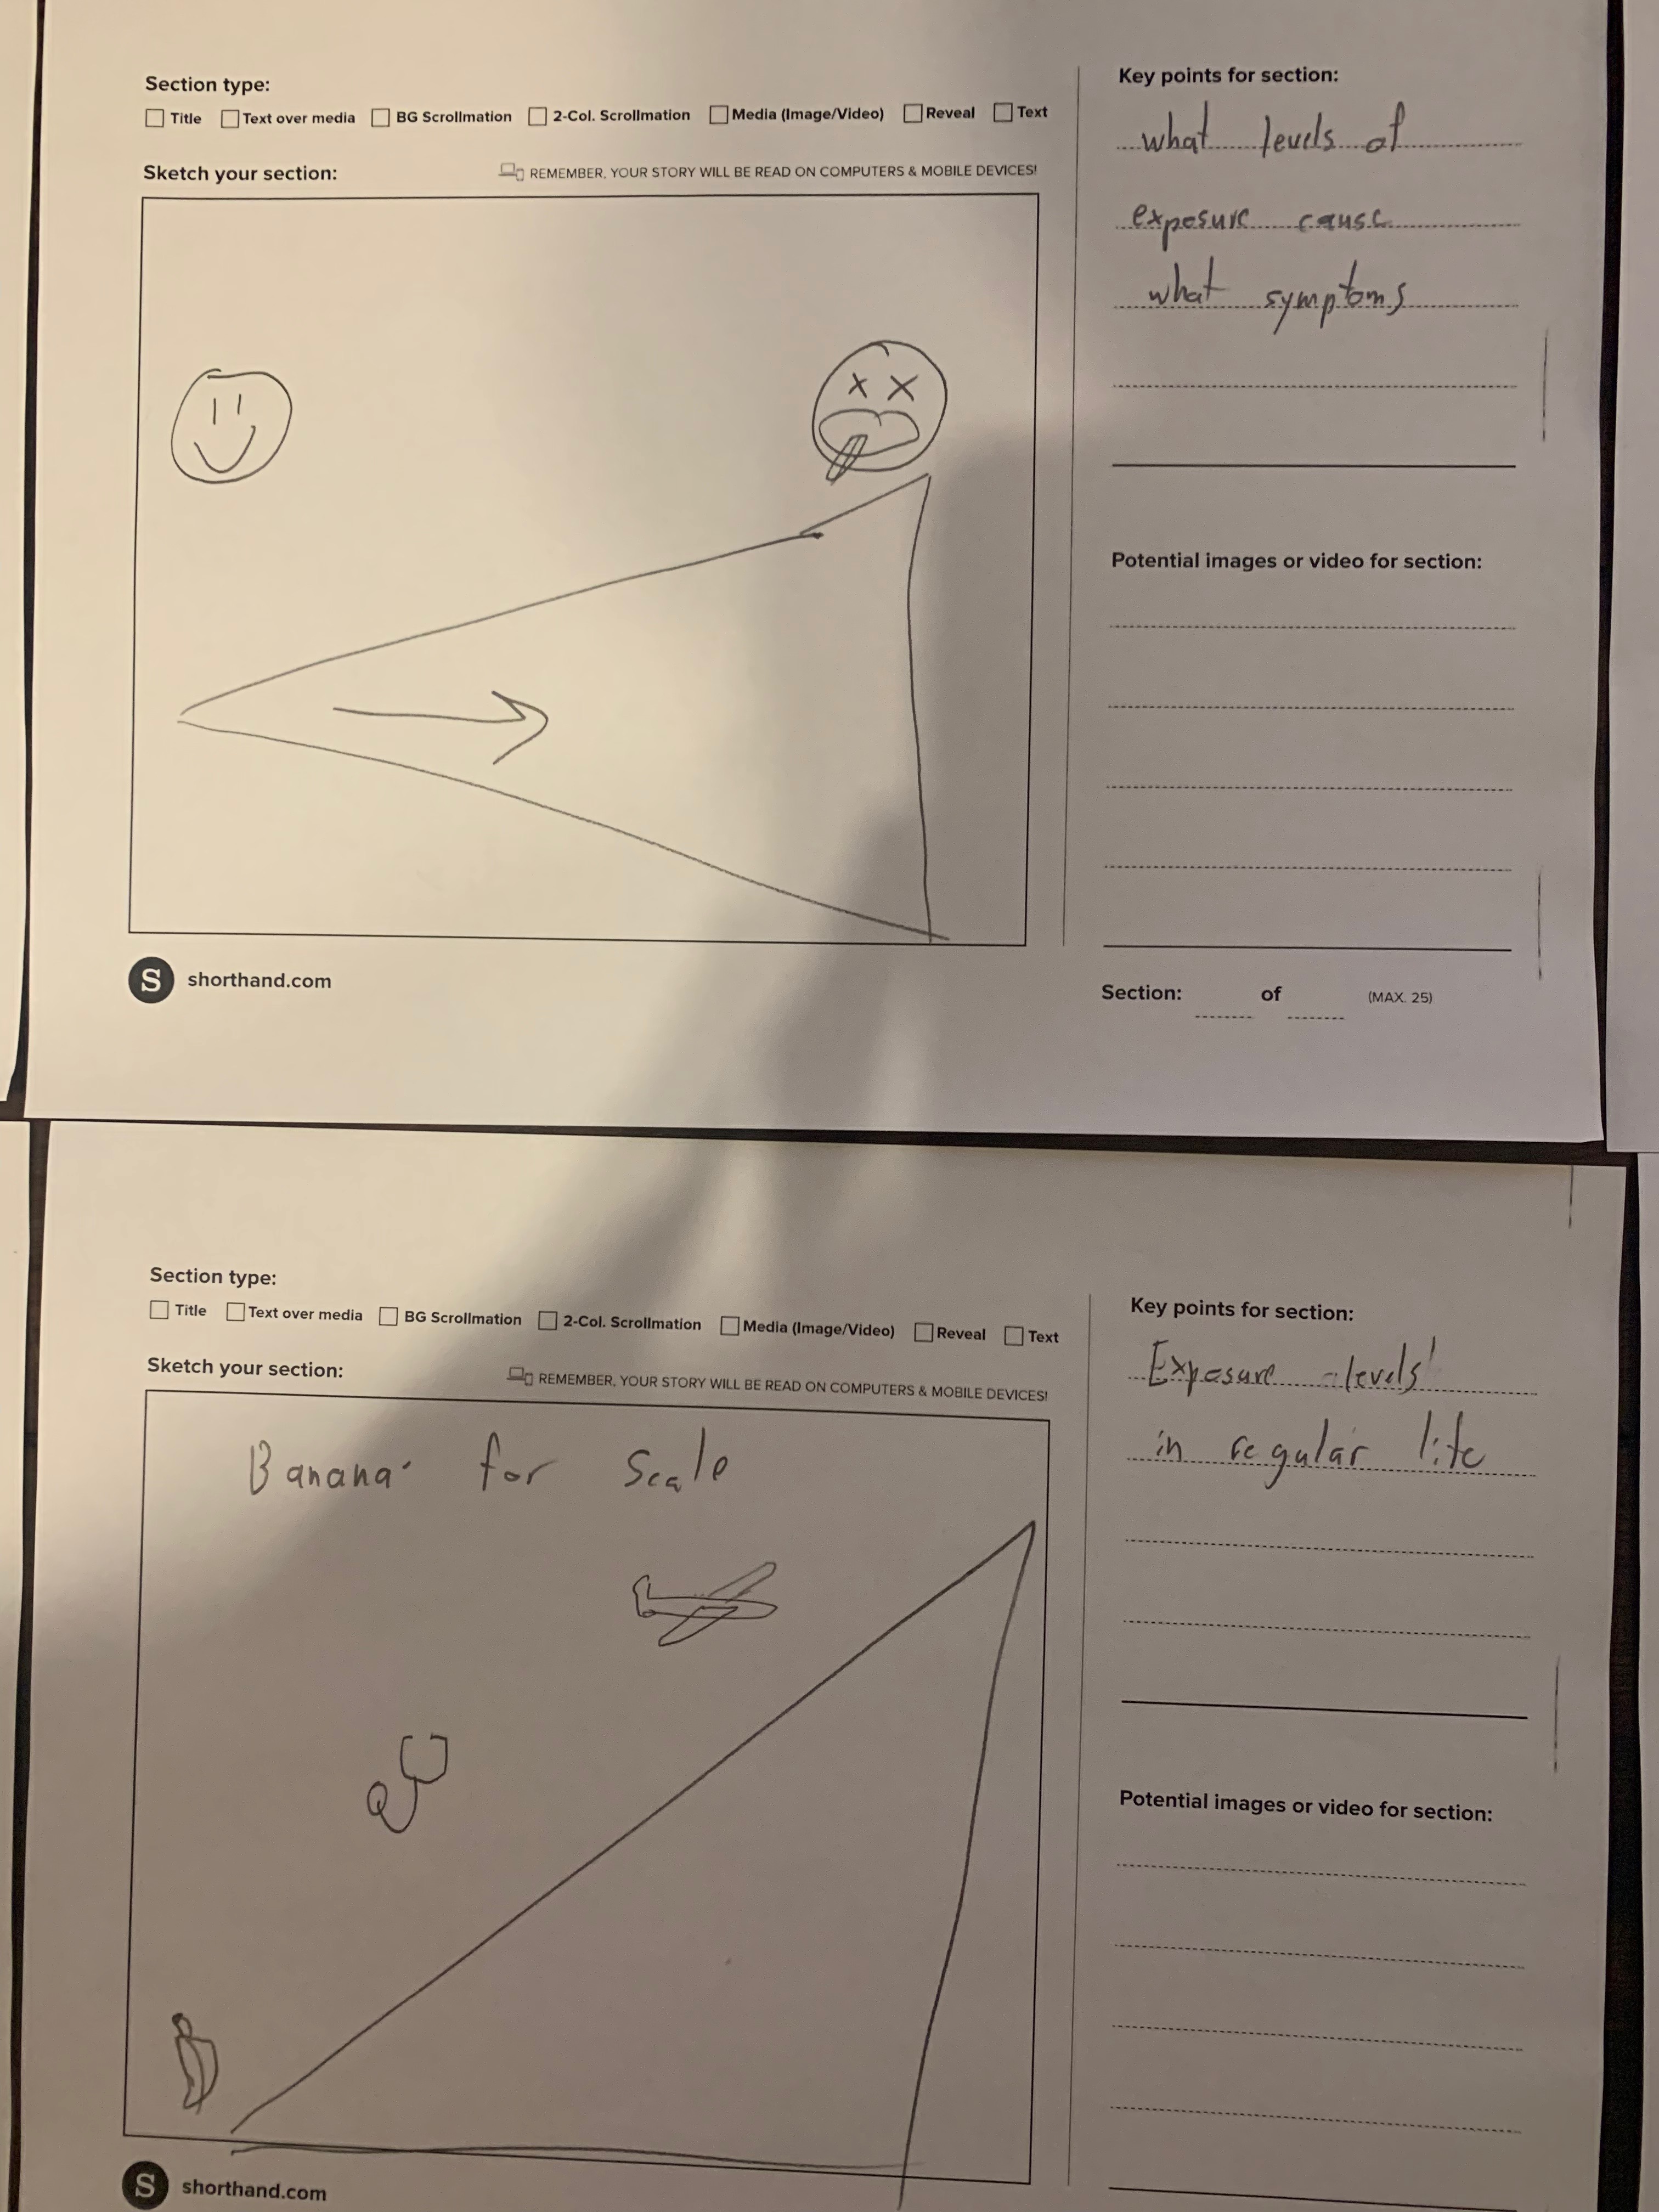 Section type:
Title Text over media BG Scrollmation 2-Col. Scrollmation Media (Image/Video) Reveal Text
Sketch your section:
REMEMBER, YOUR STORY WILL BE READ ON COMPUTERS & MOBILE DEVICES!
Key points for section:
what levels of
exposure cause
what symptoms
Potential images or video for section:
S shorthand.com
Section: of (MAX. 25)
Section type:
Title Text over media BG Scrollmation 2-Col. Scrollmation Media (Image/Video) Reveal Text
Sketch your section:
REMEMBER, YOUR STORY WILL BE READ ON COMPUTERS & MOBILE DEVICES!
Banana for scale
Key points for section:
Exposure levels
in regular life
Potential images or video for section:
S shorthand.com